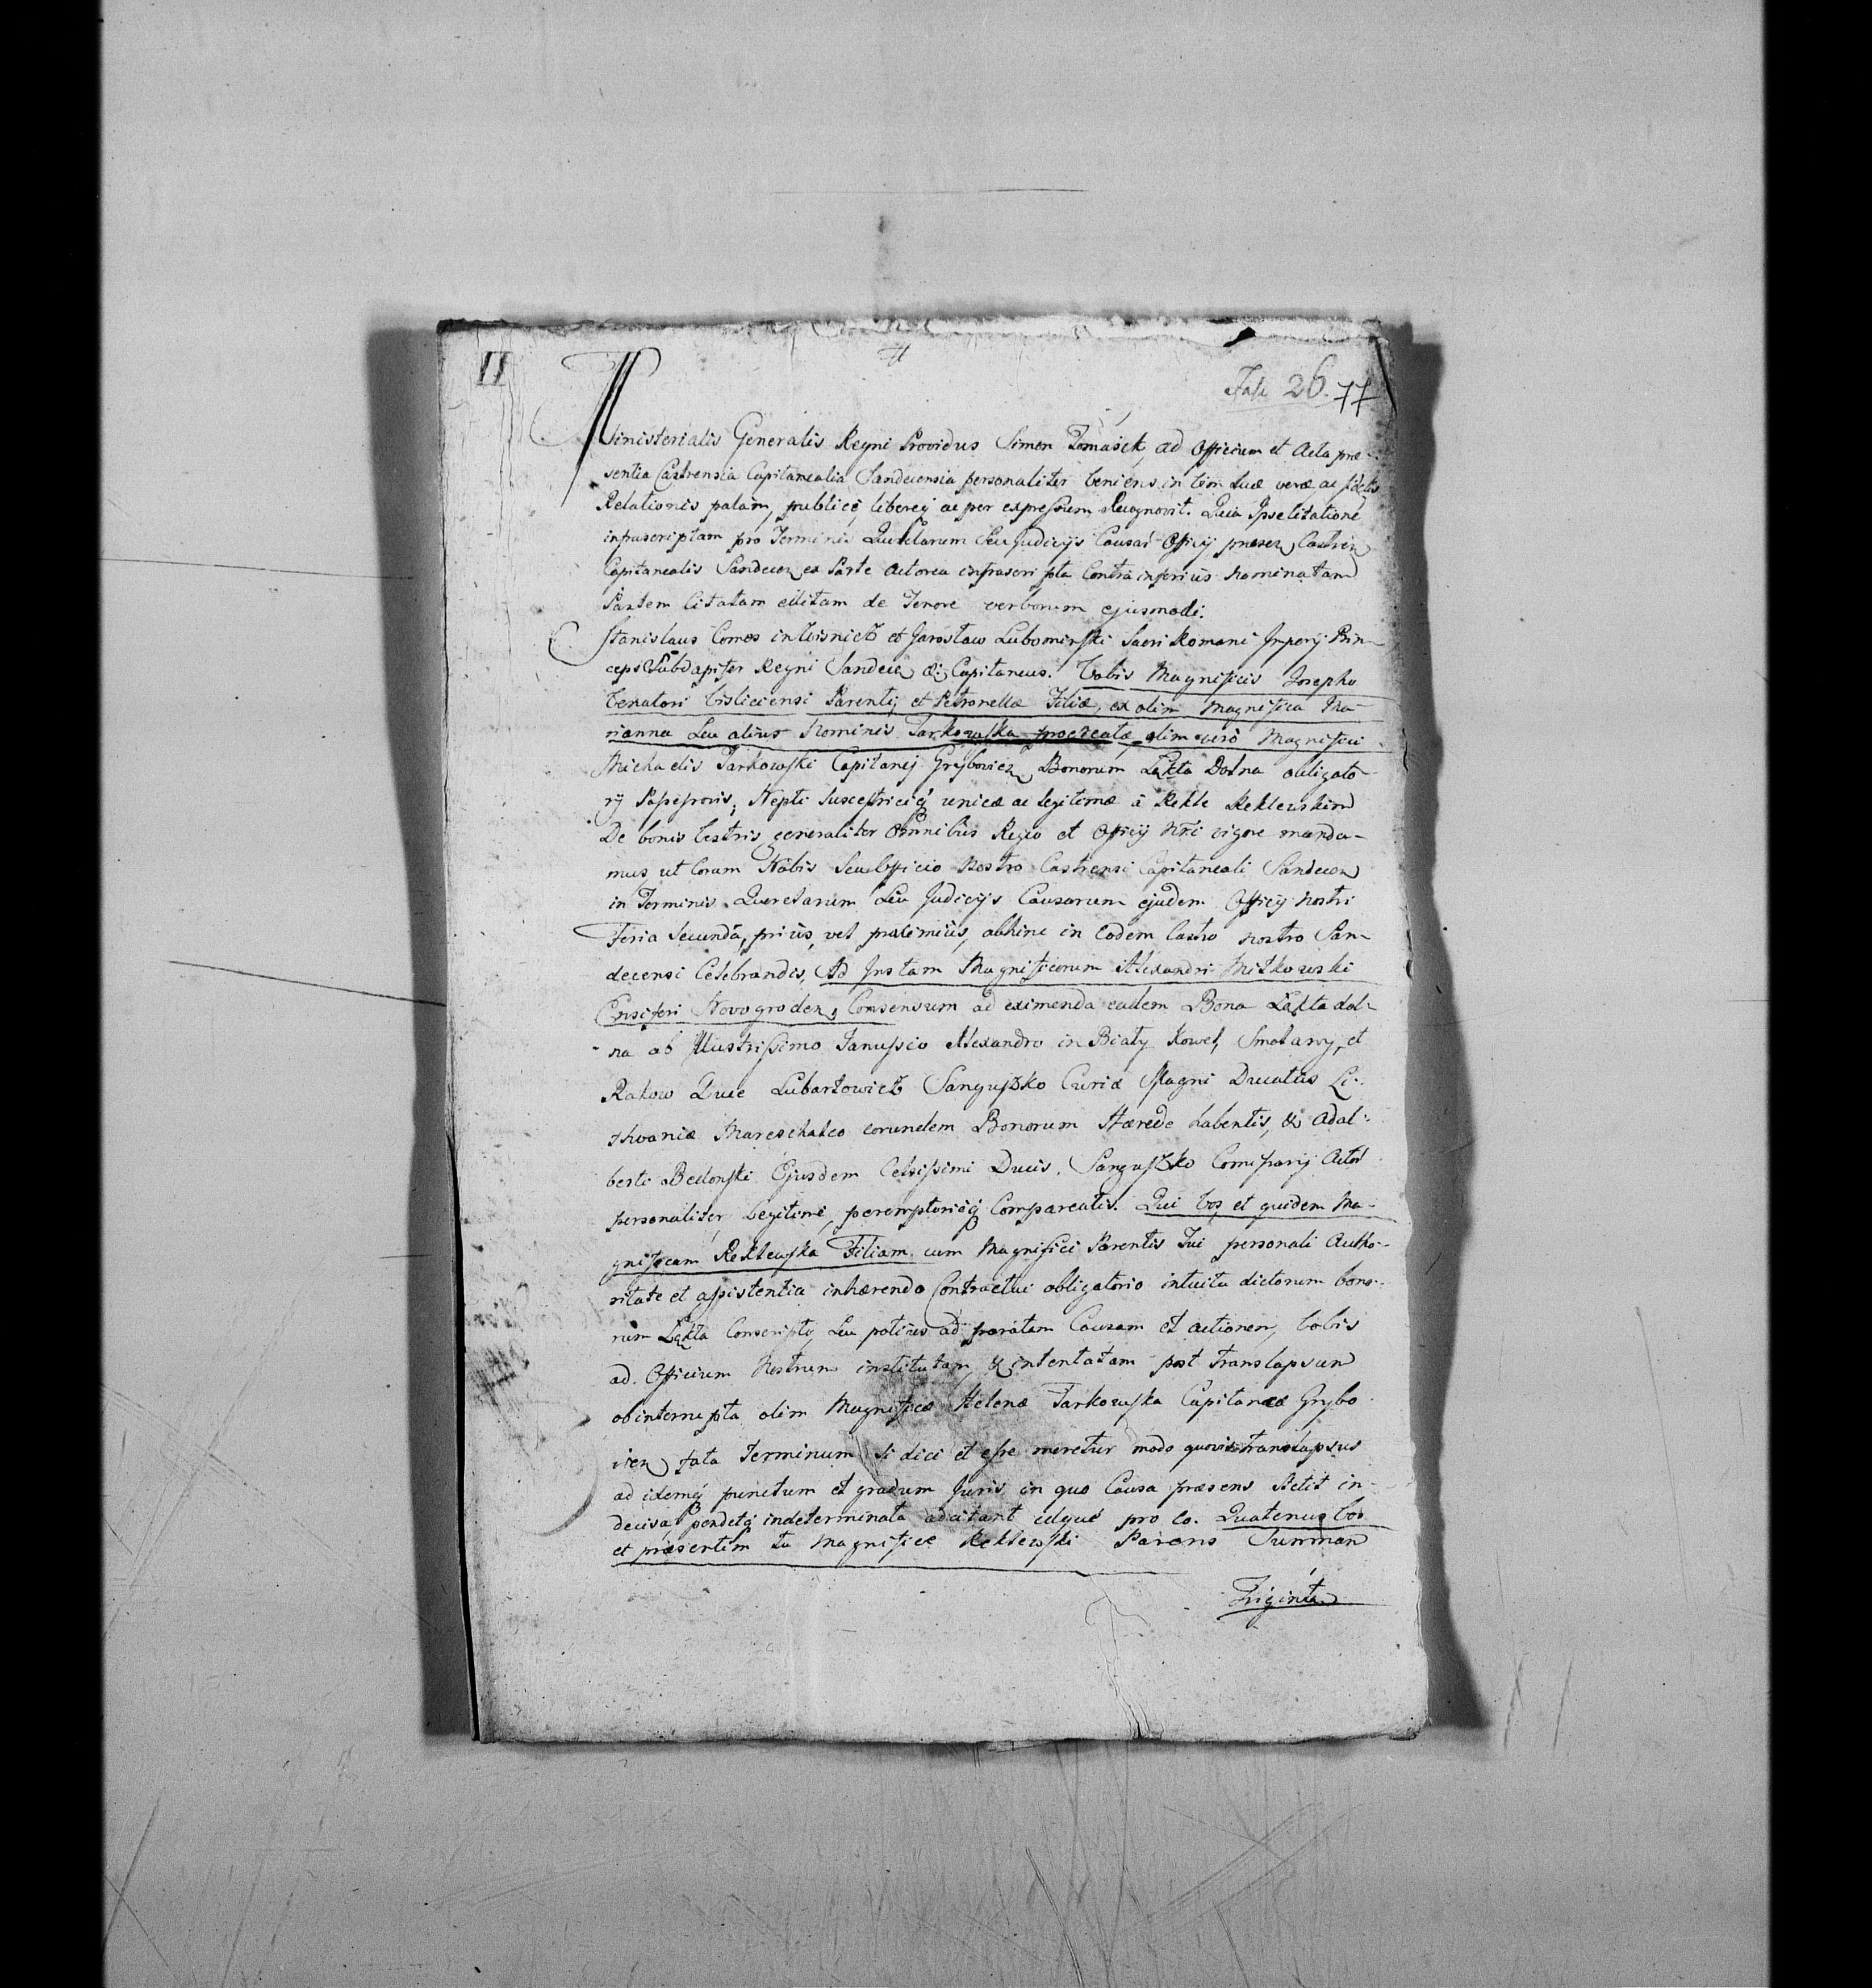 II
Fasc 26. 77
Ministerialis Generalis Regni Providus Simon Tomasick, ad Officium et Acta præ-
sentia Castrensia Capitanealia Sandecensia personaliter veniens in vim suæ veræ ac fidelis
Relationis palam, publicè, libereq ac per expressum Recognovit. Quia Ipse Citationē
infrascriptam pro Terminis Querelarum Seu Judicijs Causar Officij præsen Castren
Capitanealis Sandecen ex Parte Actorea infrascripta Contra inferius Nominatam
Partem Citatam editam de Tenore verborum ejusmodi.
Stanislaus Comes in Wisnicz et Jaroslaw Lubomirski Sacri Romani Imperij Prin-
ceps Subdapifer Regni Sandecen &: Capitaneus. Vobis Magnificis Josepho
Venatori Visliciensi Parenti, et Petronellæ Filiæ, ex olim Magnifica Ma-
rianna Seu alius Nominis Tarkowska procreatæ, olim vero Magnifici
Michaelis Tarkowski Capitanej Grybovien Bonorum Łąkta Dolna obligato-
rij Possessoris, Nepti Susceptriciq unicæ ac legitimæ à Rekle Reklewskim
De bonis Vestris generaliter Omnibus Regio et Officij Nri vigore manda-
mus, ut Coram Nobis Seu Officio Nostro Castrensi Capitaneali Sandecen
in Terminis Querelarum Seu Judicijs Causarum ejusdem Officij Nostri
Feria Secunda, priùs, vel proximiùs, abhinc in eodem Castro nostro San-
decensi Celebrandis, Ad Instam Magnificorum Alexandri Mitkowski
Ensiferi Novogroden, Consensum ad eximenda eadem Bona Łąkta dol-
na ab Illustrissimo Janussio Alexandro in Biały Kowel, Smolany, et
Rakow Duce Lubartowicz Sanguszko Curiæ Magni Ducatus Li-
thvaniæ Mareschalco eorundem Bonorum Hærede habentis, & Adal-
berti Bedonski Ejusdem Celsissimi Ducis Sanguszko Comissarij Actor
personaliter Legitimè, peremptorièq Compareatis. Qui Vos et quidem Ma-
gnificam Reklewska Filiam cum Magnifici Parentis Sui personali Autho-
ritate et assistentia inhærendo Contractui obligatorio intuitu dictorum bono-
rum Łąkta Conscripto, Seu potius ad paratam Causam et actionem, Vobis
ad Officium Nostrum institutam, & intentatam post translapsum
ob interrupta olim Magnificæ Helenæ Tarkowska Capitaneæ Grybo
vien fata Terminum si dici et esse meretur modo quovis translapsus
ad idemq punctum et gradum Juris in quo Causa præsens stetit in-
decisa, pendetq indeterminata adcitant idque pro eo. Quatenus Vos
et præsertim Tu Magnifice Reklewski Parens Summam
Triginta